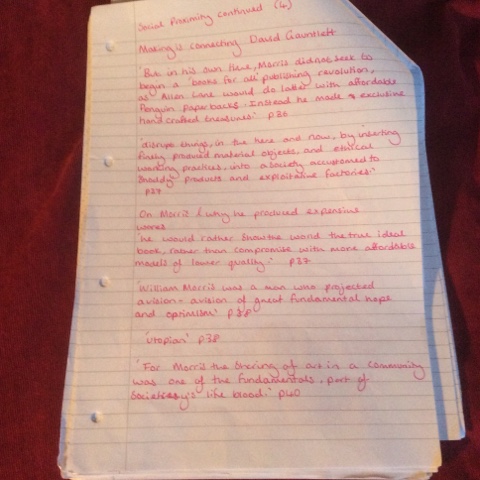 Social Proximity continued (4)
Making is connecting David Gauntlett
'But in his own time, Morris did not seek to
begin a 'books for all' publishing revolution,
as Allen Lane would do latter with affordable
Penguin paperbacks. Instead he made exclusive
hand crafted treasures.' p36
'disrupt things, in the here and now, by inserting
finely produced material objects, and ethical
working practices, into a society accustomed to
shoddy products and exploitative factories.'
p37
On Morris & why he produced expensive
works
'he would rather show the world the true ideal
book, rather than compromise with more affordable
models of lower quality.' p37
'William Morris was a man who projected
a vision - a vision of great fundamental hope
and optimism' p38
'utopian' p38
'For Morris the sharing of art in a community
was one of the fundamentals, part of
society's life blood.' p40